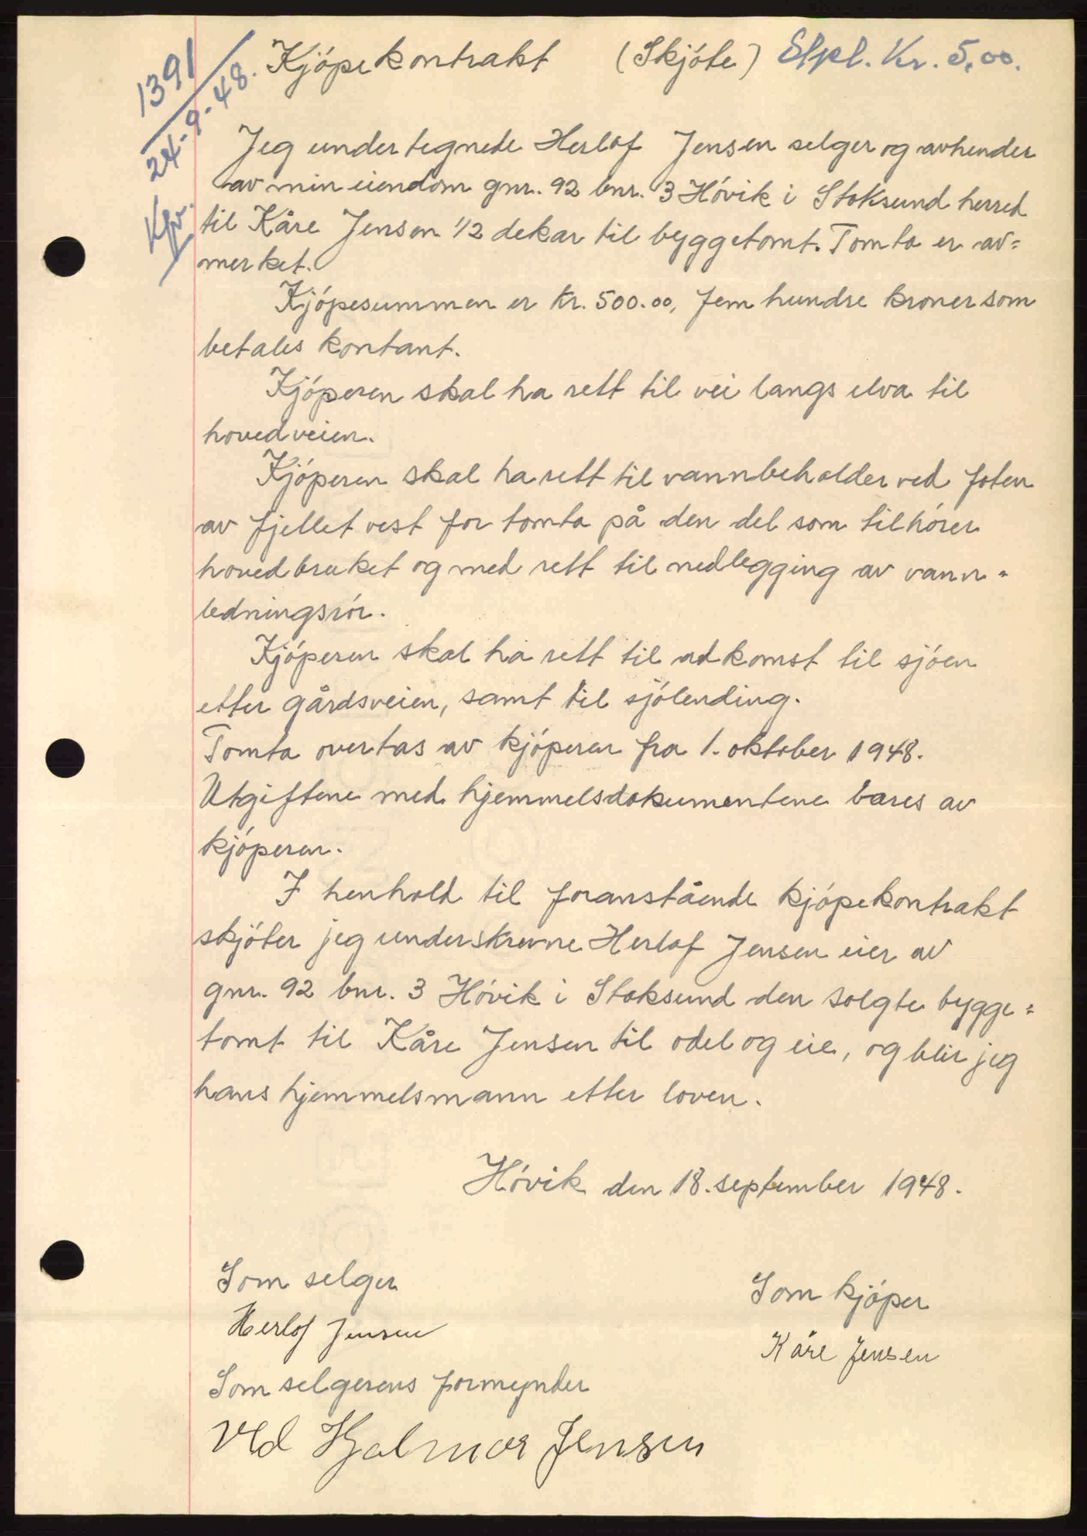 1391
24-9-48.
Kjøpekontrakt (Skjøte) Stpl. Kr. 5,00.
Jeg undertegnede Herlof Jensen selger og avhender
av min eiendom gnr. 92 bnr. 3 Hóvik i Stoksund herred
til Kåre Jensen 1/2 dekar til byggetomt. Tomta er av=
merket.
Kjópesummen er kr. 500.00, fem hundre kroner som
betales kontant.
Kjóperen skal ha rett til vei langs elva til
hovedveien.
Kjóperen skal ha rett til vannbeholder ved foten
av fjellet vest for tomta på den del som tilhórer
hovedbruket og med rett til nedlegging av vann=
ledningsrór.
Kjóperen skal ha rett til adkomst til sjóen
etter gårdsveien, samt til sjólending.
Tomta overtas av kjóperen fra 1. oktober 1948.
Utgiftene med hjemmelsdokumentene bæres av
kjóperen.
I henhold til foranstående kjópekontrakt
skjóter jeg underskrevne Herlof Jensen eier av
gnr. 92 bnr. 3 Hóvik i Stoksund den solgte bygge=
tomt til Kåre Jensen til odel og eie, og blir jeg
hans hjemmelsmann etter loven.
Hóvik den 18. september 1948.
Som selger
Herlof Jensen
Som kjóper
Kåre Jensen
Som selgerens formynder
Hjalmar Jensen